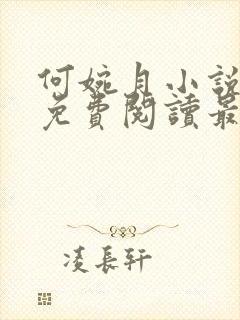 何婉月小說
免費閱讀最
凌長軒